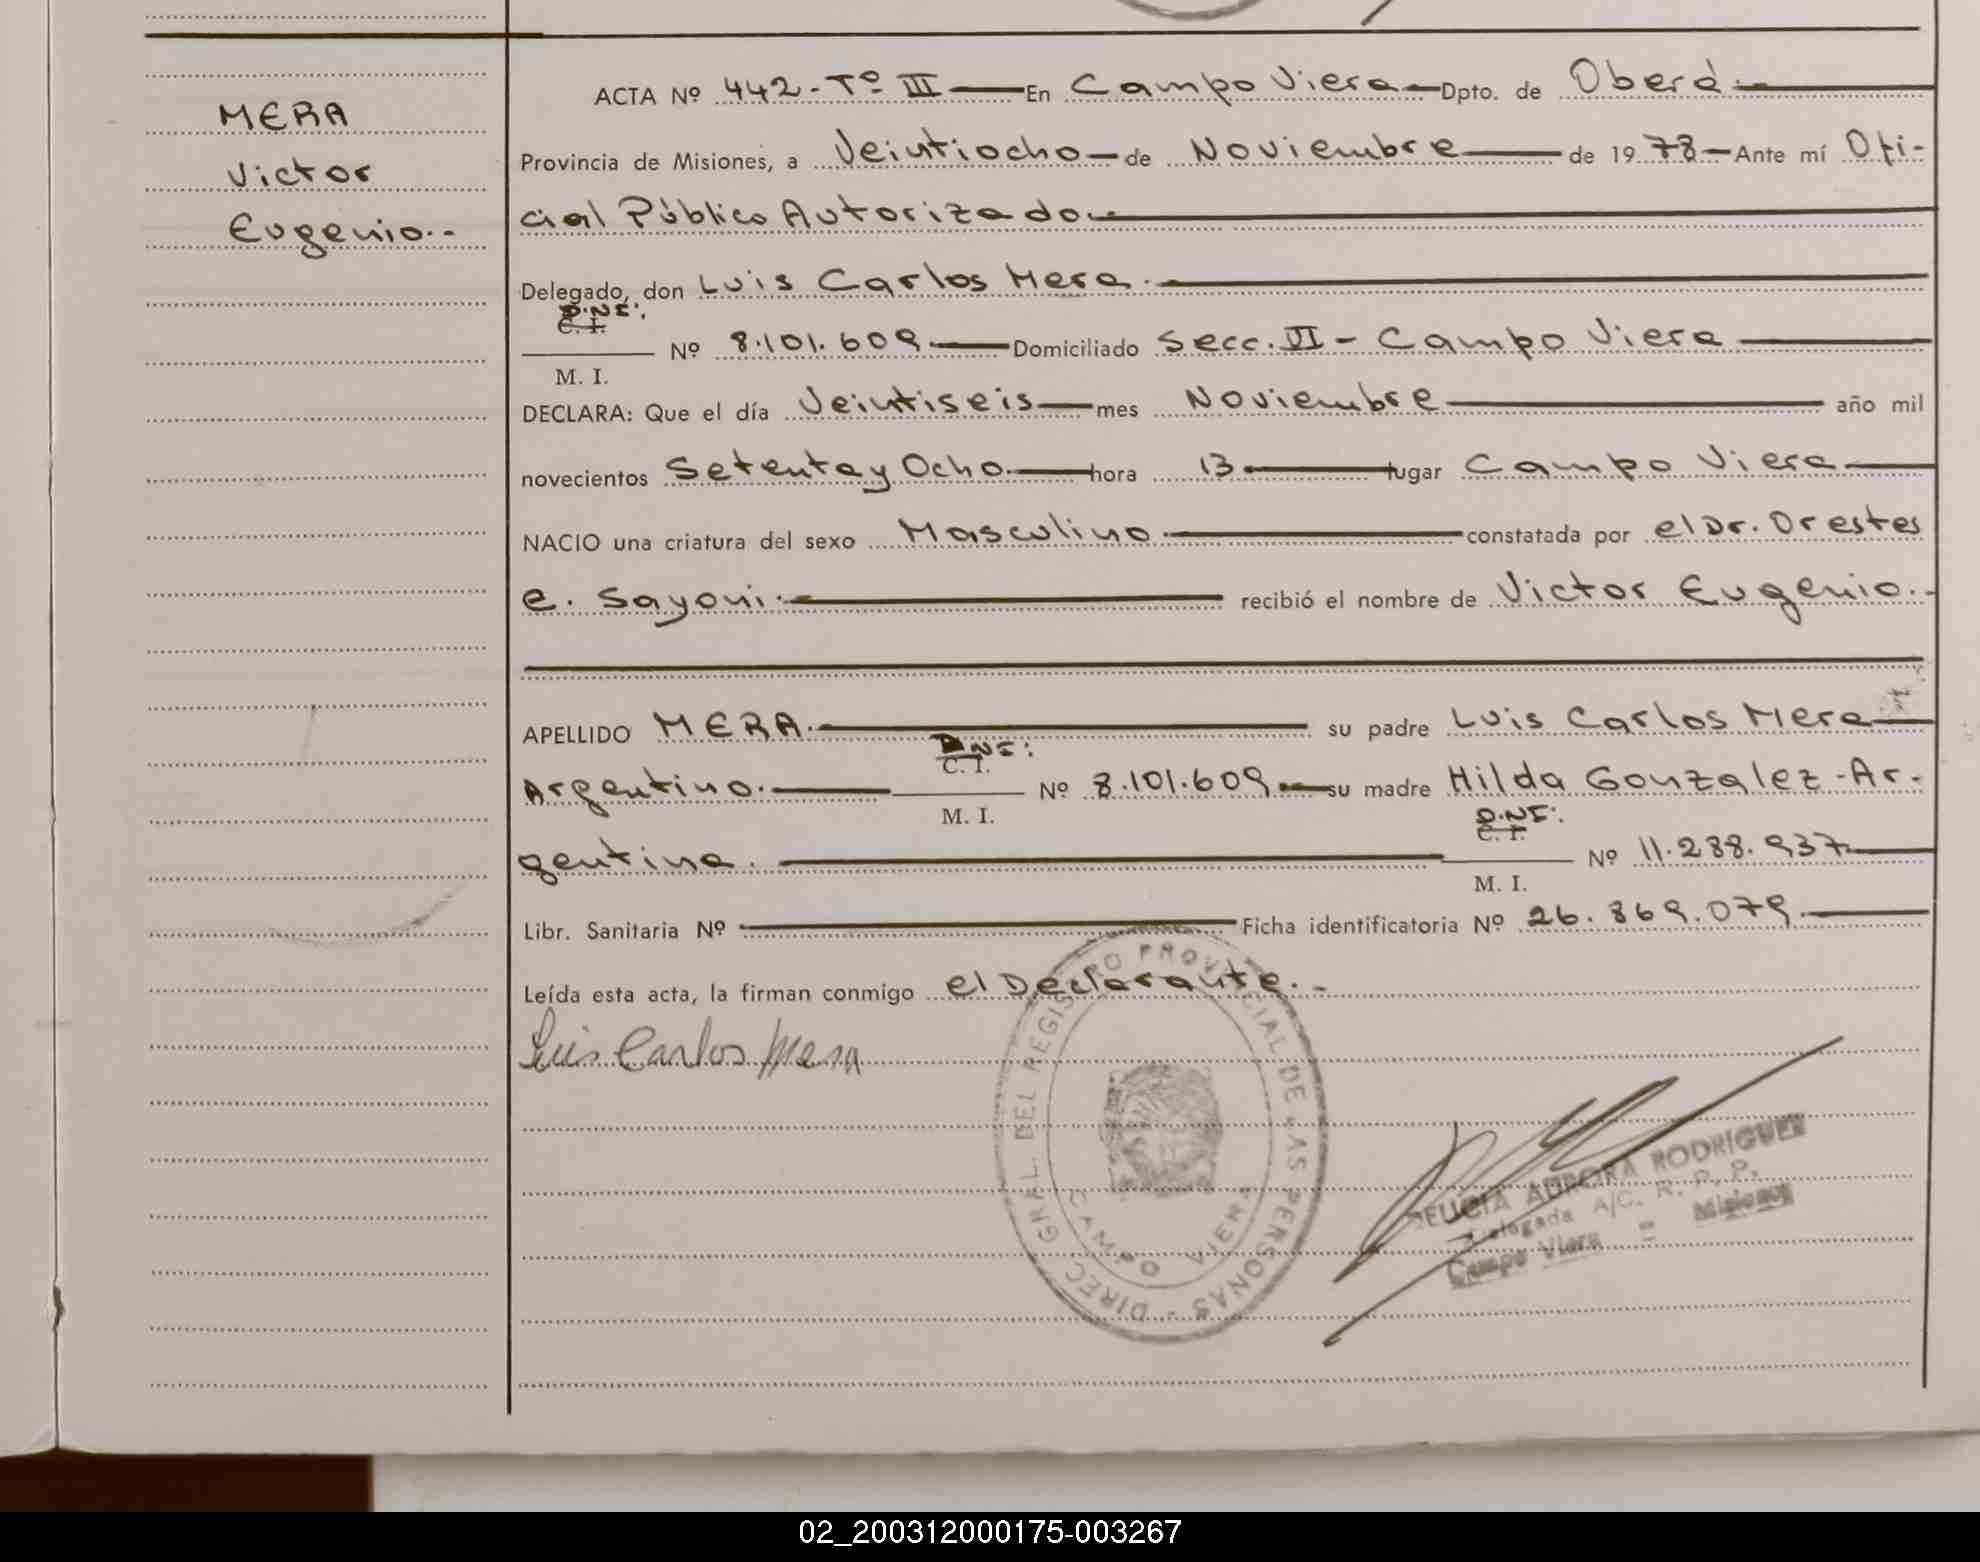 MERA
Victor
Eugenio.-
ACTA Nº 442-Tº III En Campo Viera Dpto. de Oberá.
Provincia de Misiones, a Veintiocho de Noviembre de 1978 Ante mí Ofi-
cial Público Autorizado.
Delegado, don Luis Carlos Mera.
D.N.I:
C. I.
Nº 8.101.609 Domiciliado Secc. VI - Campo Viera
M. I.
DECLARA: Que el día Veintiseis mes Noviembre año mil
novecientos Setenta y Ocho hora 13 lugar Campo Viera
NACIO una criatura del sexo Masculino constatada por el Dr. Orestes
E. Sayoni. recibió el nombre de Victor Eugenio.-
APELLIDO MERA. su padre Luis Carlos Mera
D.N.I:
C. I.
Argentino. Nº 8.101.609 su madre Hilda Gonzalez - Ar-
M. I.
D.N.I:
C. I.
gentina. Nº 11.288.937
M. I.
Libr. Sanitaria Nº Ficha identificatoria Nº 26.869.079.
Leída esta acta, la firman conmigo el Declarante.-
Luis Carlos Mera
DIREC. GRAL. DEL REGISTRO PROVINCIAL DE LAS PERSONAS -
CAMPO VIERA
AURORA RODRIGUEZ
Delegada A/C. R. P. P.
Campo Viera - Misiones
02_200312000175-003267